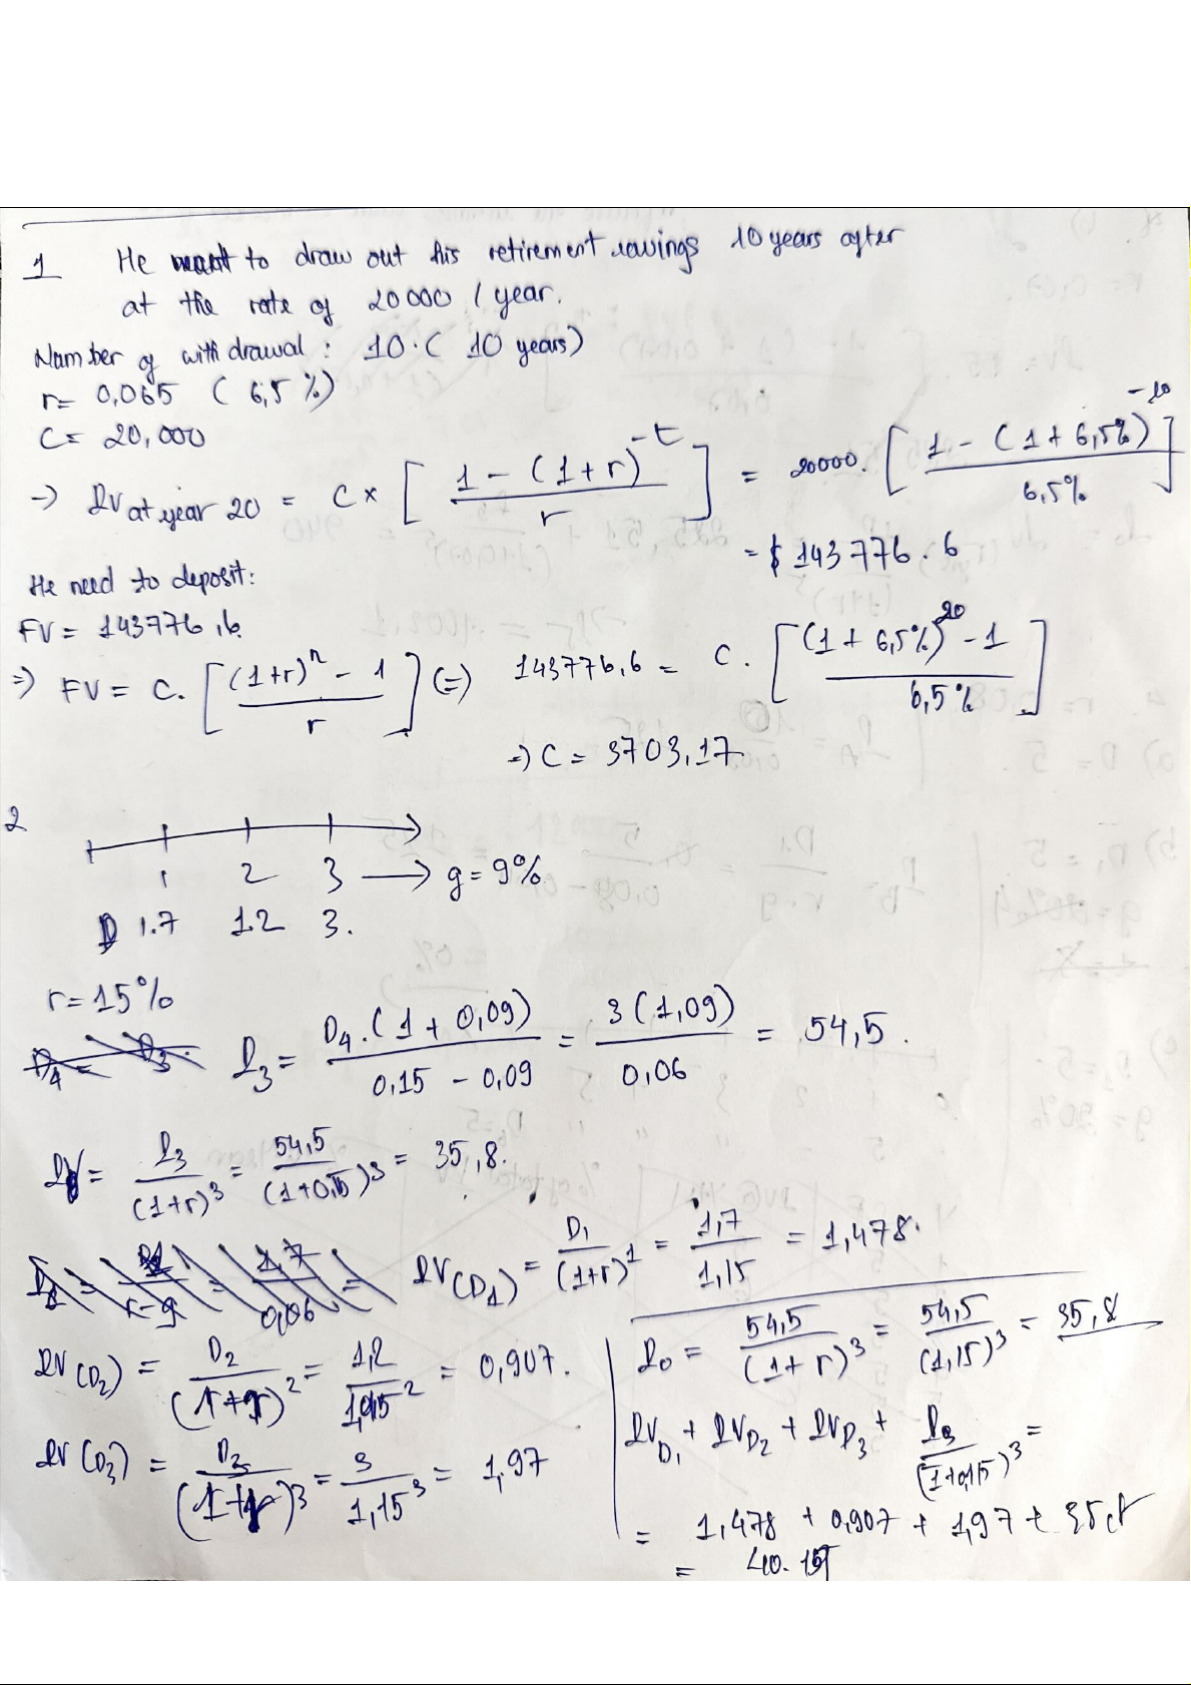 1 He want to draw out his retirement savings 10 years after
at the rate of 20000 / year.
Number of withdrawal : 10 . ( 10 years)
r = 0,065 ( 6,5 %)
C = 20,000
-> PV at year 20 = C x [ (1 - (1+r)^-t) / r ] = 20000 . [ (1 - (1+6,5%)^-10) / 6,5% ]
= $ 143776.6
He need to deposit:
FV = 143776,6
=> FV = C. [ ((1+r)^n - 1) / r ] (=) 143776,6 = C . [ ((1+6,5%)^20 - 1) / 6,5% ]
=> C = 3703,17
2
1 2 3 -> g = 9%
D 1.7 1.2 3.
r = 15%
D4 = D3. P3 = D4.(1+0,09) / 0,15 - 0,09 = 3(1,09) / 0,06 = 54,5.
= P3 / (1+r)^3 = 54,5 / (1+0,15)^3 = 35,8.
= r-g = 1,7 / 0,06 = PV(D1) = D1 / (1+r)^1 = 1,7 / 1,15 = 1,478.
PV(D2) = D2 / (1+r)^2 = 1,2 / 1,15^2 = 0,907.
PV(D3) = D3 / (1+r)^3 = 3 / 1,15^3 = 1,97
P0 = 54,5 / (1+r)^3 = 54,5 / (1,15)^3 = 35,8
PVD1 + PVD2 + PVD3 + P3 / (1+0,15)^3 =
= 1,478 + 0,907 + 1,97 + 35,8
= 40.15